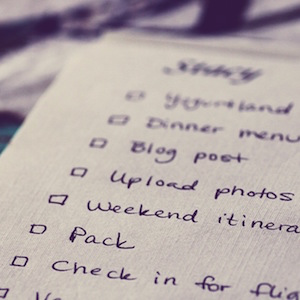 Yogurtland
Dinner menu
Blog post
Upload photos
Weekend itinera
Pack
Check in for flig